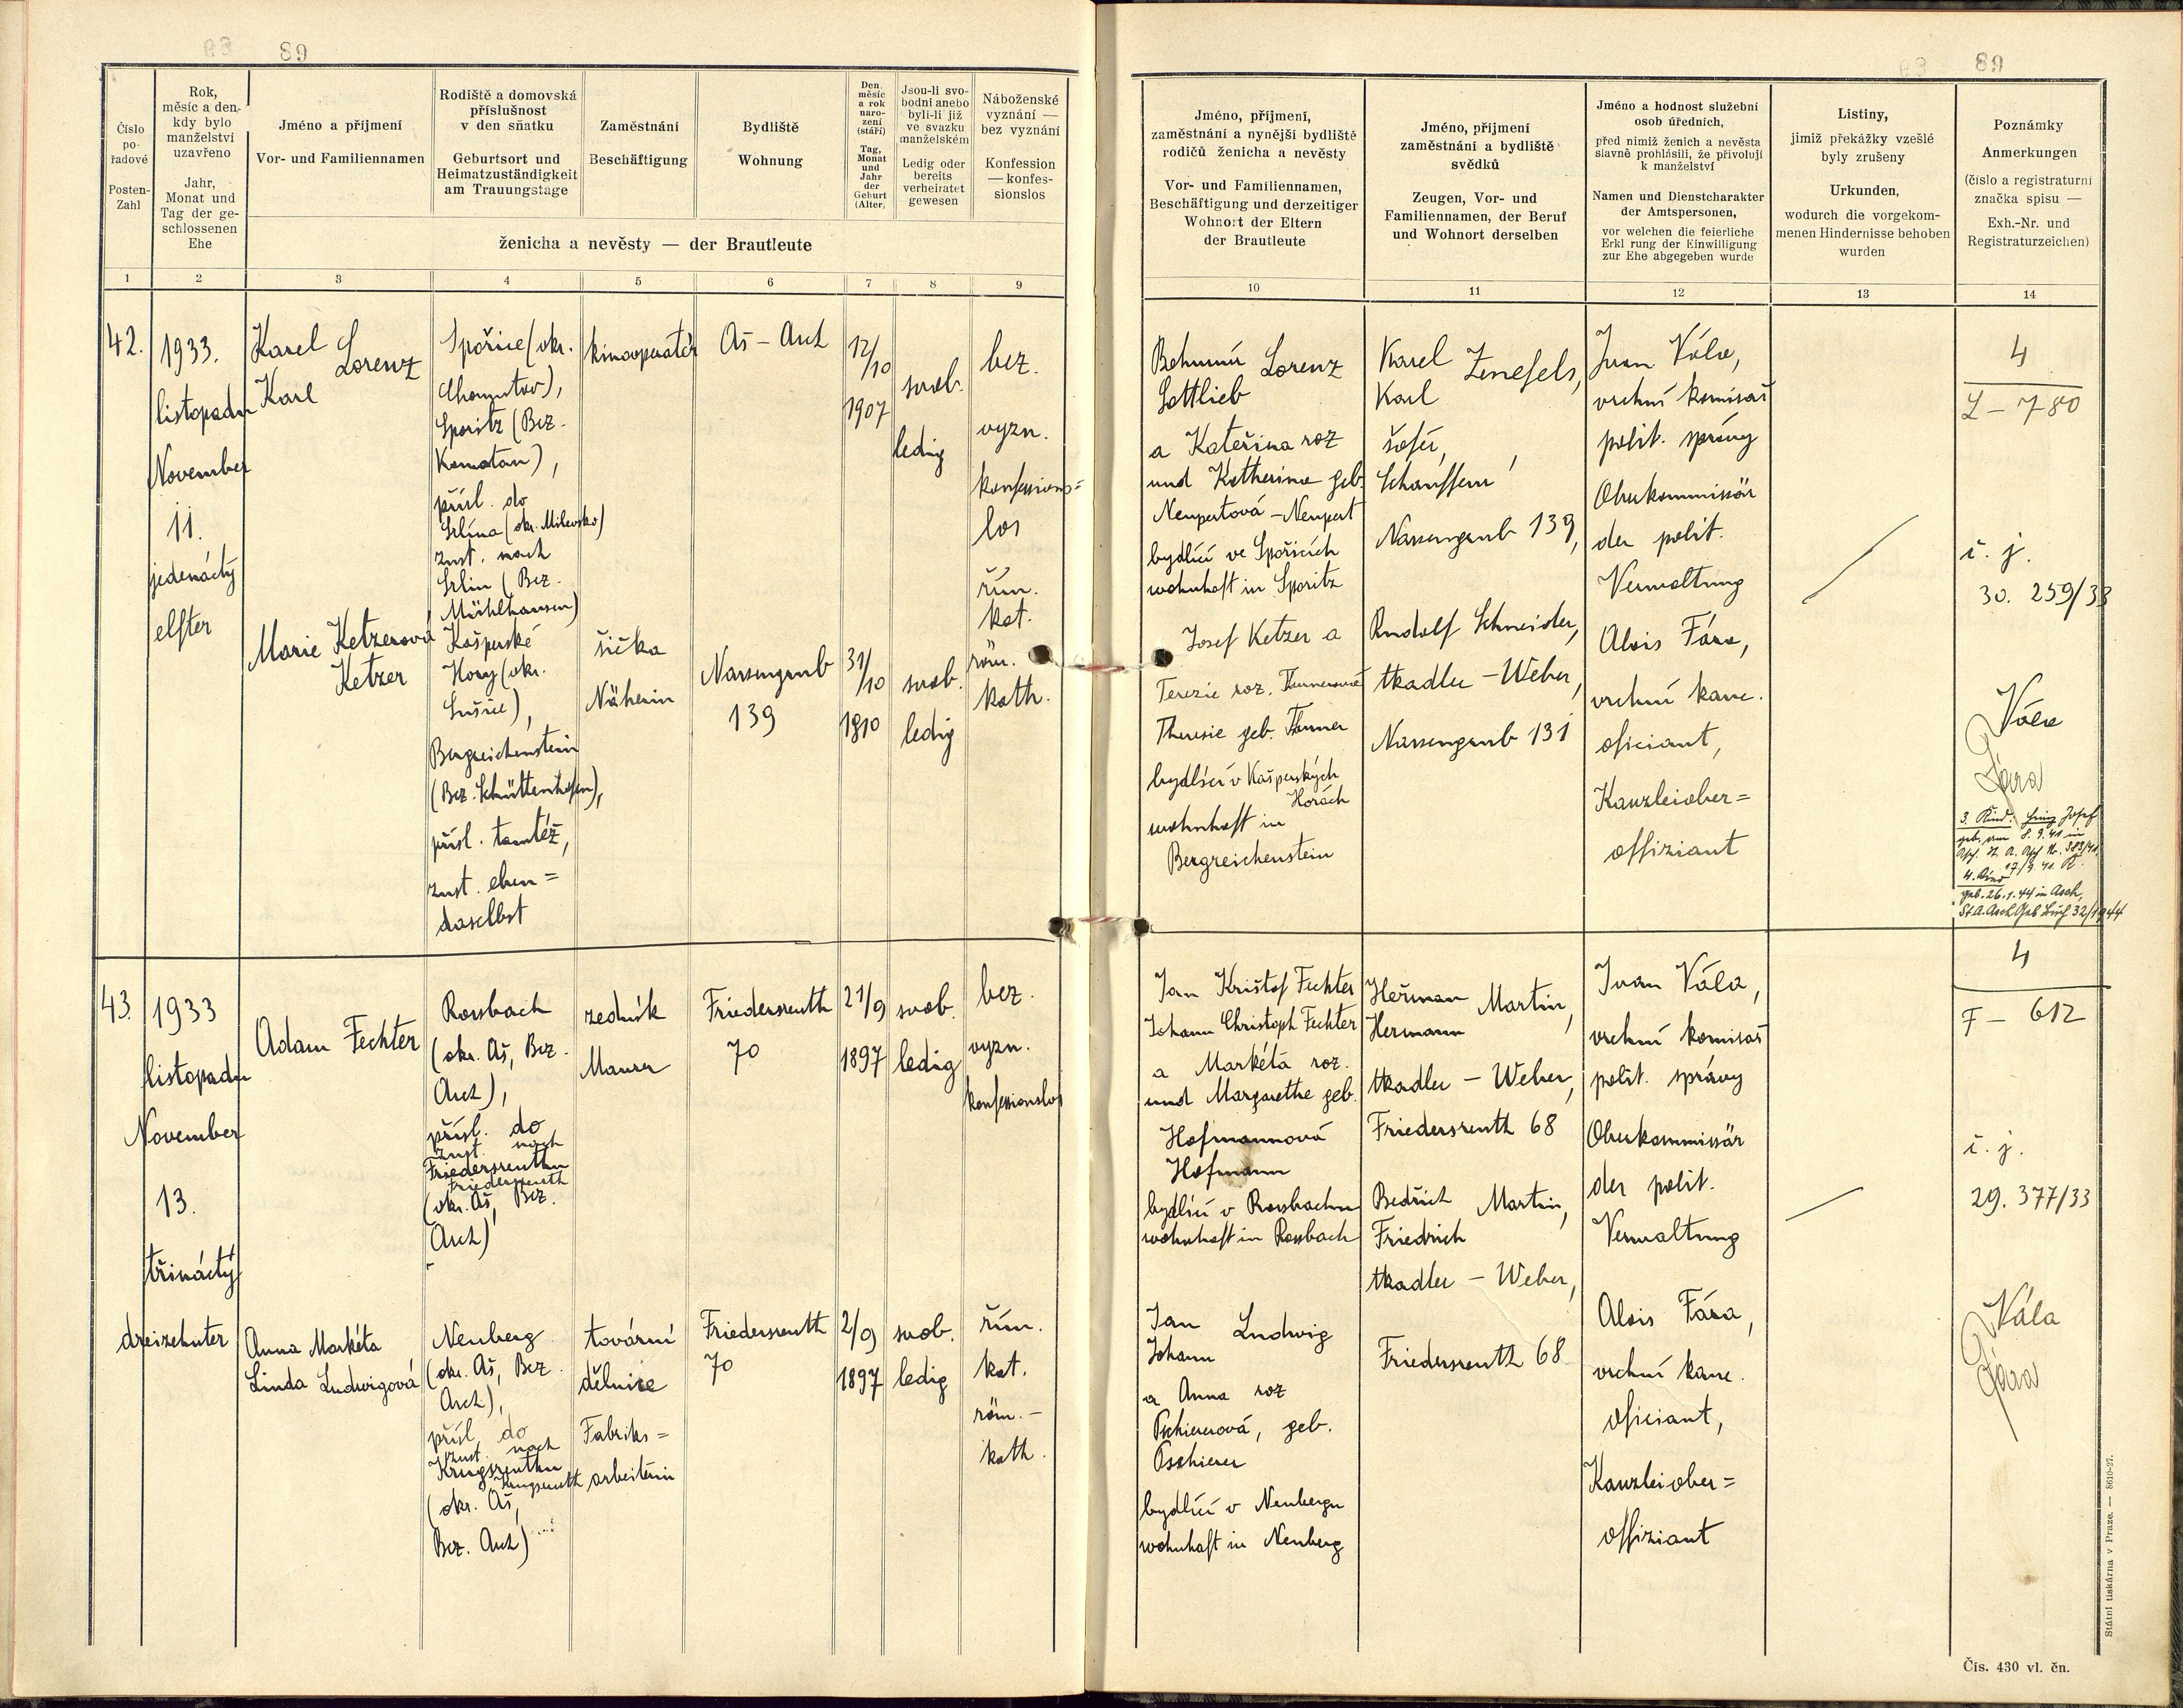 89
Číslo
po-
řadové
Posten-
Zahl
Rok,
měsíc a den,
kdy bylo
manželství
uzavřeno
Jahr,
Monat und
Tag der ge-
schlossenen
Ehe
Jméno a příjmení
Vor- und Familiennamen
Rodiště a domovská
příslušnost
v den sňatku
Geburtsort und
Heimatzuständigkeit
am Trauungstage
Zaměstnání
Beschäftigung
Bydliště
Wohnung
Den,
měsíc
a rok
naro-
zení
(stáří)
Tag,
Monat
und
Jahr
der
Geburt
(Alter)
Jsou-li svo-
bodni anebo
byli-li již
ve svazku
manželském
Ledig oder
bereits
verheiratet
gewesen
Náboženské
vyznání —
bez vyznání
Konfession
— konfes-
sionslos
ženicha a nevěsty — der Brautleute
1 2 3 4 5 6 7 8 9
42.
1933.
listopadu
November
11.
jedenáctý
elfter
Karel Lorenz
Karl
Spořice (okr.
Chomutov),
Sporitz (Bez.
Komotau),
přísl. do
Srlína (okr. Milevsko)
zust. nach
Srlin (Bez.
Mühlhausen)
kinooperatér
Aš - Asch
12/10
1907
svob.
ledig
bez.
vyzn.
konfessions=
los
Marie Ketzerová
Ketzer
Kašperské
Hory (okr.
Sušice),
Bergreichenstein
(Bez. Schüttenhofen),
přísl. tamtéž,
zust. eben=
daselbst
šička
Näherin
Nassengrub
139
31/10
1910
svob.
ledig
řím.
kat.
röm.
kath.
43.
1933
listopadu
November
13.
třináctý
dreizehnter
Adam Fechter
Rossbach
(okr. Aš, Bez.
Asch),
přísl. do
zust. nach
Friedersreuthu
Friedersreuth
(okr. Aš, Bez.
Asch)
zedník
Maurer
Friedersreuth
70
21/9
1897
svob.
ledig
bez.
vyzn.
konfessionslos
Anna Markéta
Linda Ludwigová
Neuberg
(okr. Aš, Bez.
Asch),
přísl. do
zust. nach
Krugsreuthu
Krugsreuth
(okr. Aš,
Bez. Asch)
tovární
dělnice
Fabriks=
arbeiterin
Friedersreuth
70
2/9
1897
svob.
ledig
řím.
kat.
röm.-
kath.
89
Jméno, příjmení,
zaměstnání a nynější bydliště
rodičů ženicha a nevěsty
Vor- und Familiennamen,
Beschäftigung und derzeitiger
Wohnort der Eltern
der Brautleute
Jméno, příjmení
zaměstnání a bydliště
svědků
Zeugen, Vor- und
Familiennamen, der Beruf
und Wohnort derselben
Jméno a hodnost služební
osob úředních,
před nimiž ženich a nevěsta
slavně prohlásili, že přivolují
k manželství
Namen und Dienstcharakter
der Amtspersonen,
vor welchen die feierliche
Erkl rung der Einwilligung
zur Ehe abgegeben wurde
Listiny,
jimiž překážky vzešlé
byly zrušeny
Urkunden,
wodurch die vorgekom-
menen Hindernisse behoben
wurden
Poznámky
Anmerkungen
(číslo a registraturní
značka spisu —
Exh.-Nr. und
Registraturzeichen)
10 11 12 13 14
Bohumír Lorenz
Gottlieb
a Kateřina roz
und Katherina geb.
Neupertová - Neupert
bydlící ve Spořicích
wohnhaft in Sporitz
Josef Ketzer a
Terezie roz. Thurnerová
Theresie geb. Thurner
bydlící v Kašperských
Horách
wohnhaft in
Bergreichenstein
Karel Zenefels,
Karl
šofér,
Schaufferur
Nassengrub 139,
Rudolf Schneider,
tkadlec - Weber,
Nassengrub 131
Ivan Vála,
vrchní komisař
polit. správy
Oberkommissär
der polit.
Verwaltung
Alois Fára,
vrchní kanc.
oficiant,
Kanzleiober=
offiziant
4
L - 780
č. j.
30. 259/33
Vála
Fára
3. Kind: Heinz Josef
geb. am 8.9.41 in
Asch. St. A. Asch Nr. 383/41
17/9. 41
4. Kind
geb. 26.1.44 in Asch,
St.A. Asch Geb Buch 32/1944
Jan Krištof Fechter
Johann Christoph Fechter
a Markéta roz.
und Margarethe geb.
Hofmannová
Hofmann
bydlící v Rossbachu
wohnhaft in Rossbach
Jan Ludwig
Johann
a Anna roz
Pschiererová, geb.
Pschierer
bydlící v Neubergu
wohnhaft in Neuberg
Heřman Martin,
Hermann
tkadlec - Weber,
Friedersreuth 68
Bedřich Martin,
Friedrich
tkadlec - Weber,
Friedersreuth 68.
Ivan Vála,
vrchní komisař
polit. správy
Oberkommissär
der polit.
Verwaltung
Alois Fára,
vrchní kanc.
oficiant,
Kanzleiober=
offiziant
4
F - 612
č. j.
29. 377/33
Vála
Fára
Státní tiskárna v Praze. — 8610-27.
Čís. 430 vl. čn.